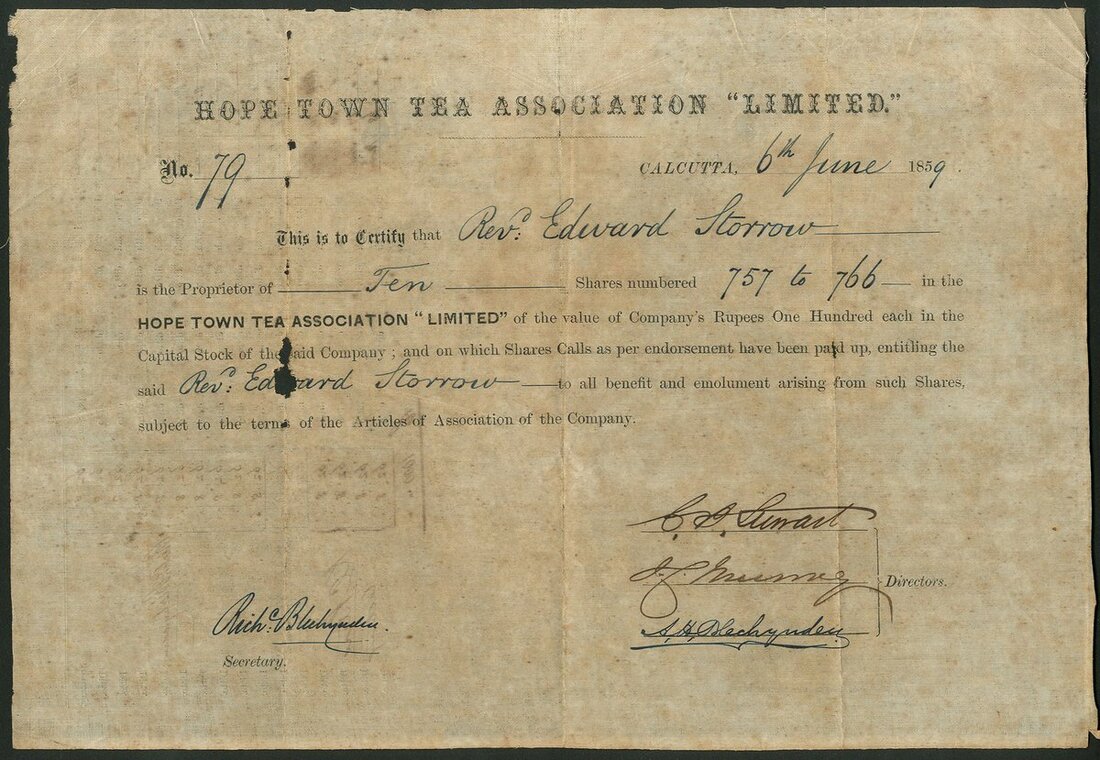 HOPE TOWN TEA ASSOCIATION "LIMITED."
No. 79 CALCUTTA, 6th June 1859.
This is to Certify that Revd: Edward Storrow
is the Proprietor of Ten Shares numbered 757 to 766 in the
HOPE TOWN TEA ASSOCIATION "LIMITED" of the value of Company's Rupees One Hundred each in the
Capital Stock of the said Company; and on which Shares Calls as per endorsement have been paid up, entitling the
said Revd: Edward Storrow to all benefit and emolument arising from such Shares,
subject to the terms of the Articles of Association of the Company.
Stewart
Directors.
Richd. Blechynden.
A. H. Blechynden
Secretary.